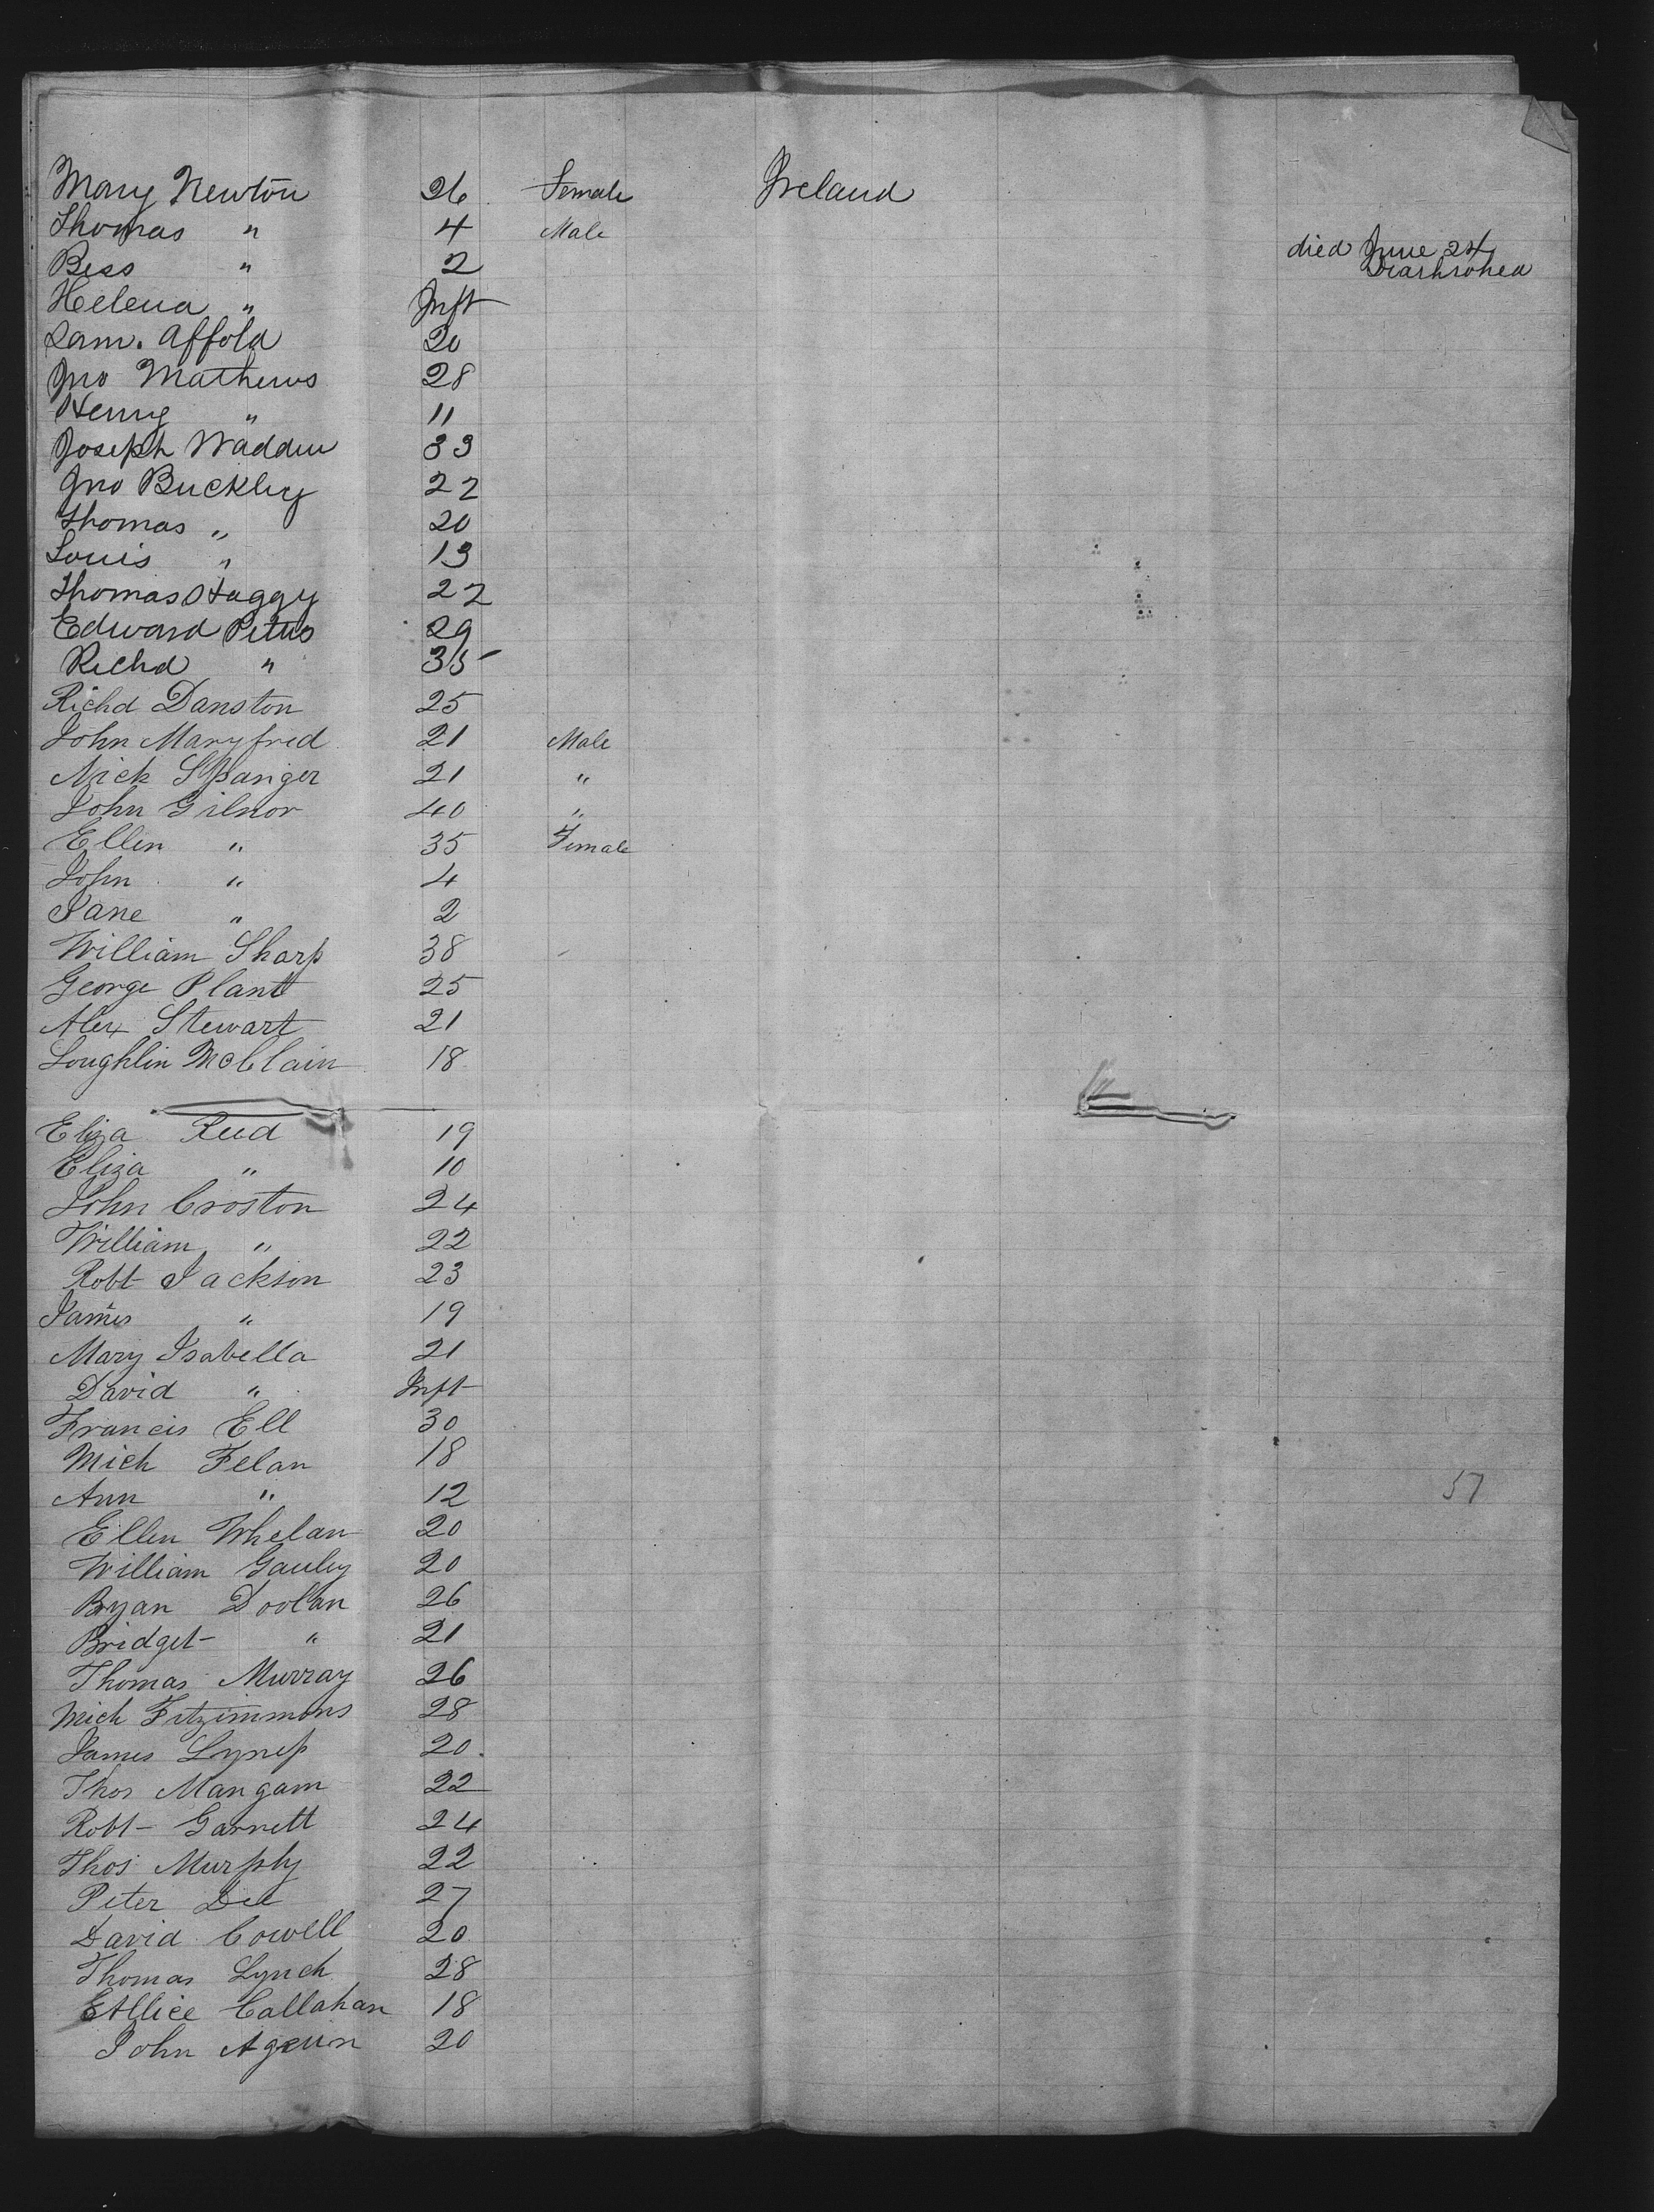 Mary Newton 26 Female Ireland
Thomas " 4 Male
died June 24
Bess " 2 Diarhrohea
Helena " Inft
Sam. Affold 20
Jno Mathews 28
Henry " 11
Joseph Wadden 33
Jno Buckley 22
Thomas " 20
Louis " 13
Thomas Haggy 22
Edward 29
Richd " 35
Richd Danston 25
John Maryfred 21 Male
Mick 21 "
John Gilnor 40 "
Ellen " 35 Female
John " 4
Jane " 2
William Sharp 38
George Plant 25
Alex Stewart 21
Loughlin McClain 18
Eliza Reed 19
Eliza " 10
John Croston 24
William " 22
Robt Jackson 23
James " 19
Mary Isabella 21
David " Inft
Francis Ell 30
Mich Felan 18
Ann " 12 57
Ellen Whelan 20
William Gauley 20
Bryan Doolan 26
Bridget " 21
Thomas Murray 26
Mich Fitzimmons 28
James 20
Thos Mangam 22
Robt Garnett 24
Thos Murphy 22
Peter Dee 27
David Cowell 20
Thomas Lynch 28
Allice Callahan 18
John 20